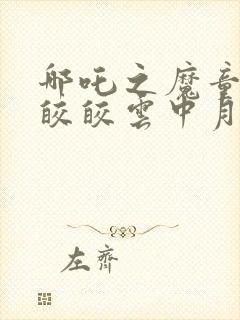 哪吒之魔童
皎皎雲中月
左齊